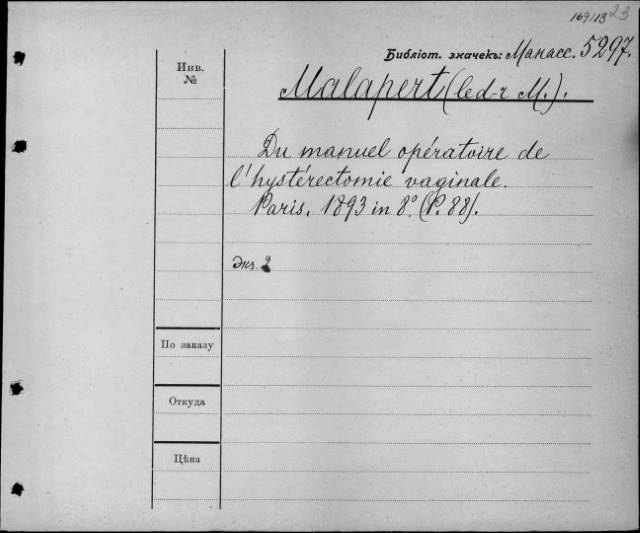 169/13 23
Библіот. значекъ: Манасс. 5297.
Инв.
№
Malapert (le d-r M.).
Du manuel opératoire de
l'hystérectomie vaginale.
Paris. 1893 in 8°. (P. 88).
Экз. 2
По заказу
Откуда
Цѣна